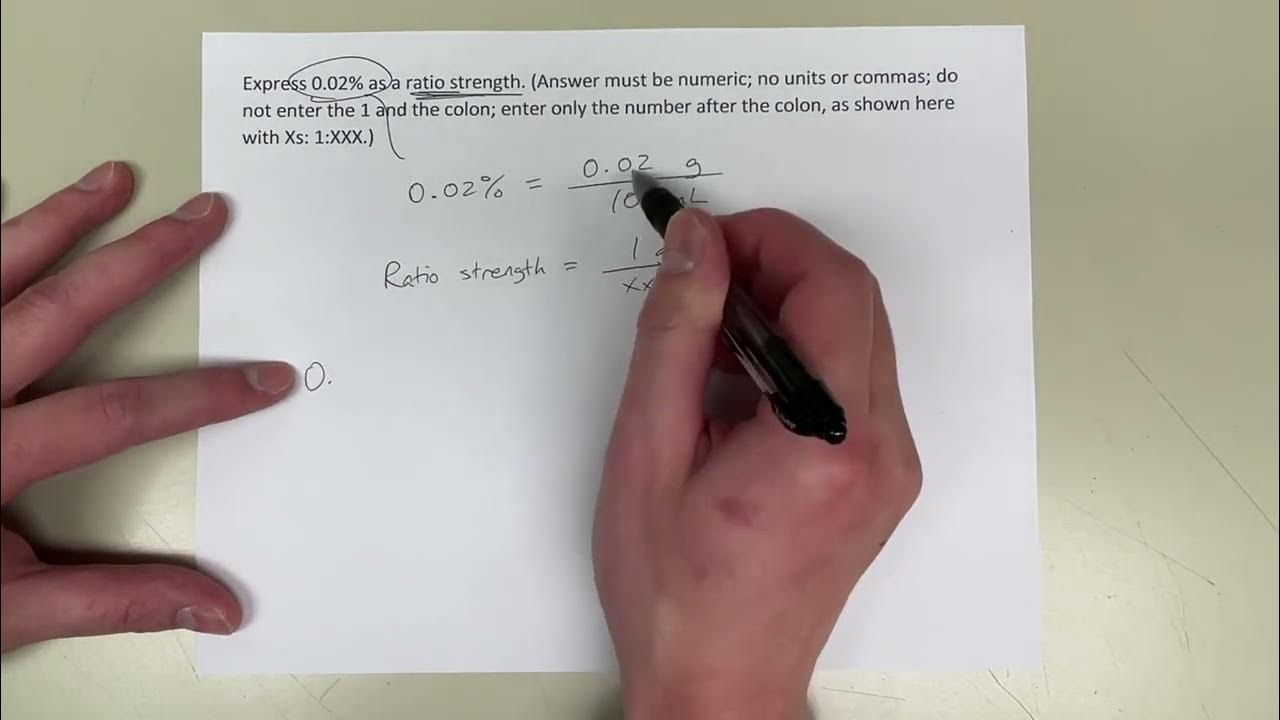 Express 0.02% as a ratio strength. (Answer must be numeric; no units or commas; do
not enter the 1 and the colon; enter only the number after the colon, as shown here
with Xs: 1:XXX.)
0.02% = 0.02 g
mL
Ratio strength = 1
xx
0.